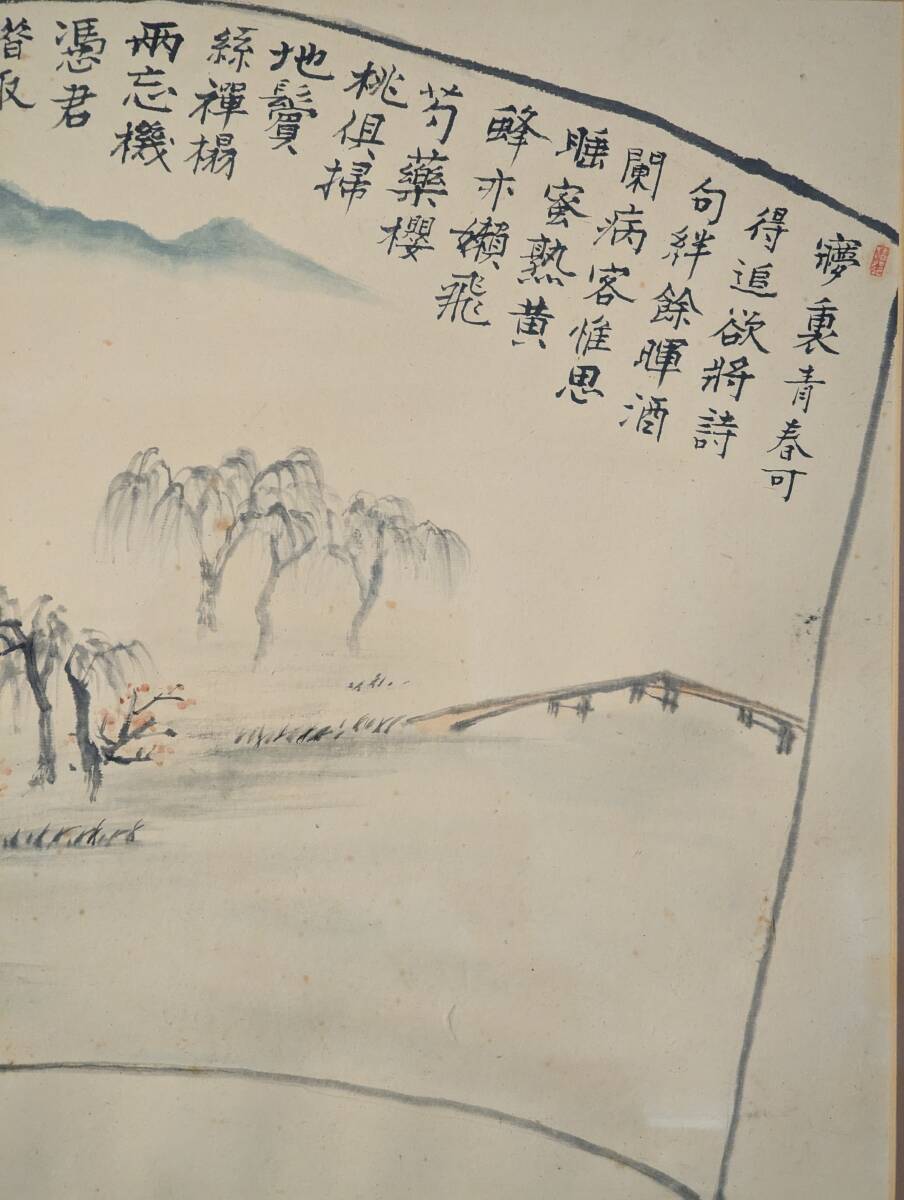 寢裏青春可
得追欲將詩
句絆餘暉酒
闌病客惟思
睡蜜熟黄
蜂亦嬾飛
芍藥櫻
桃俱掃
地鬢
絲禪榻
兩忘機
憑君